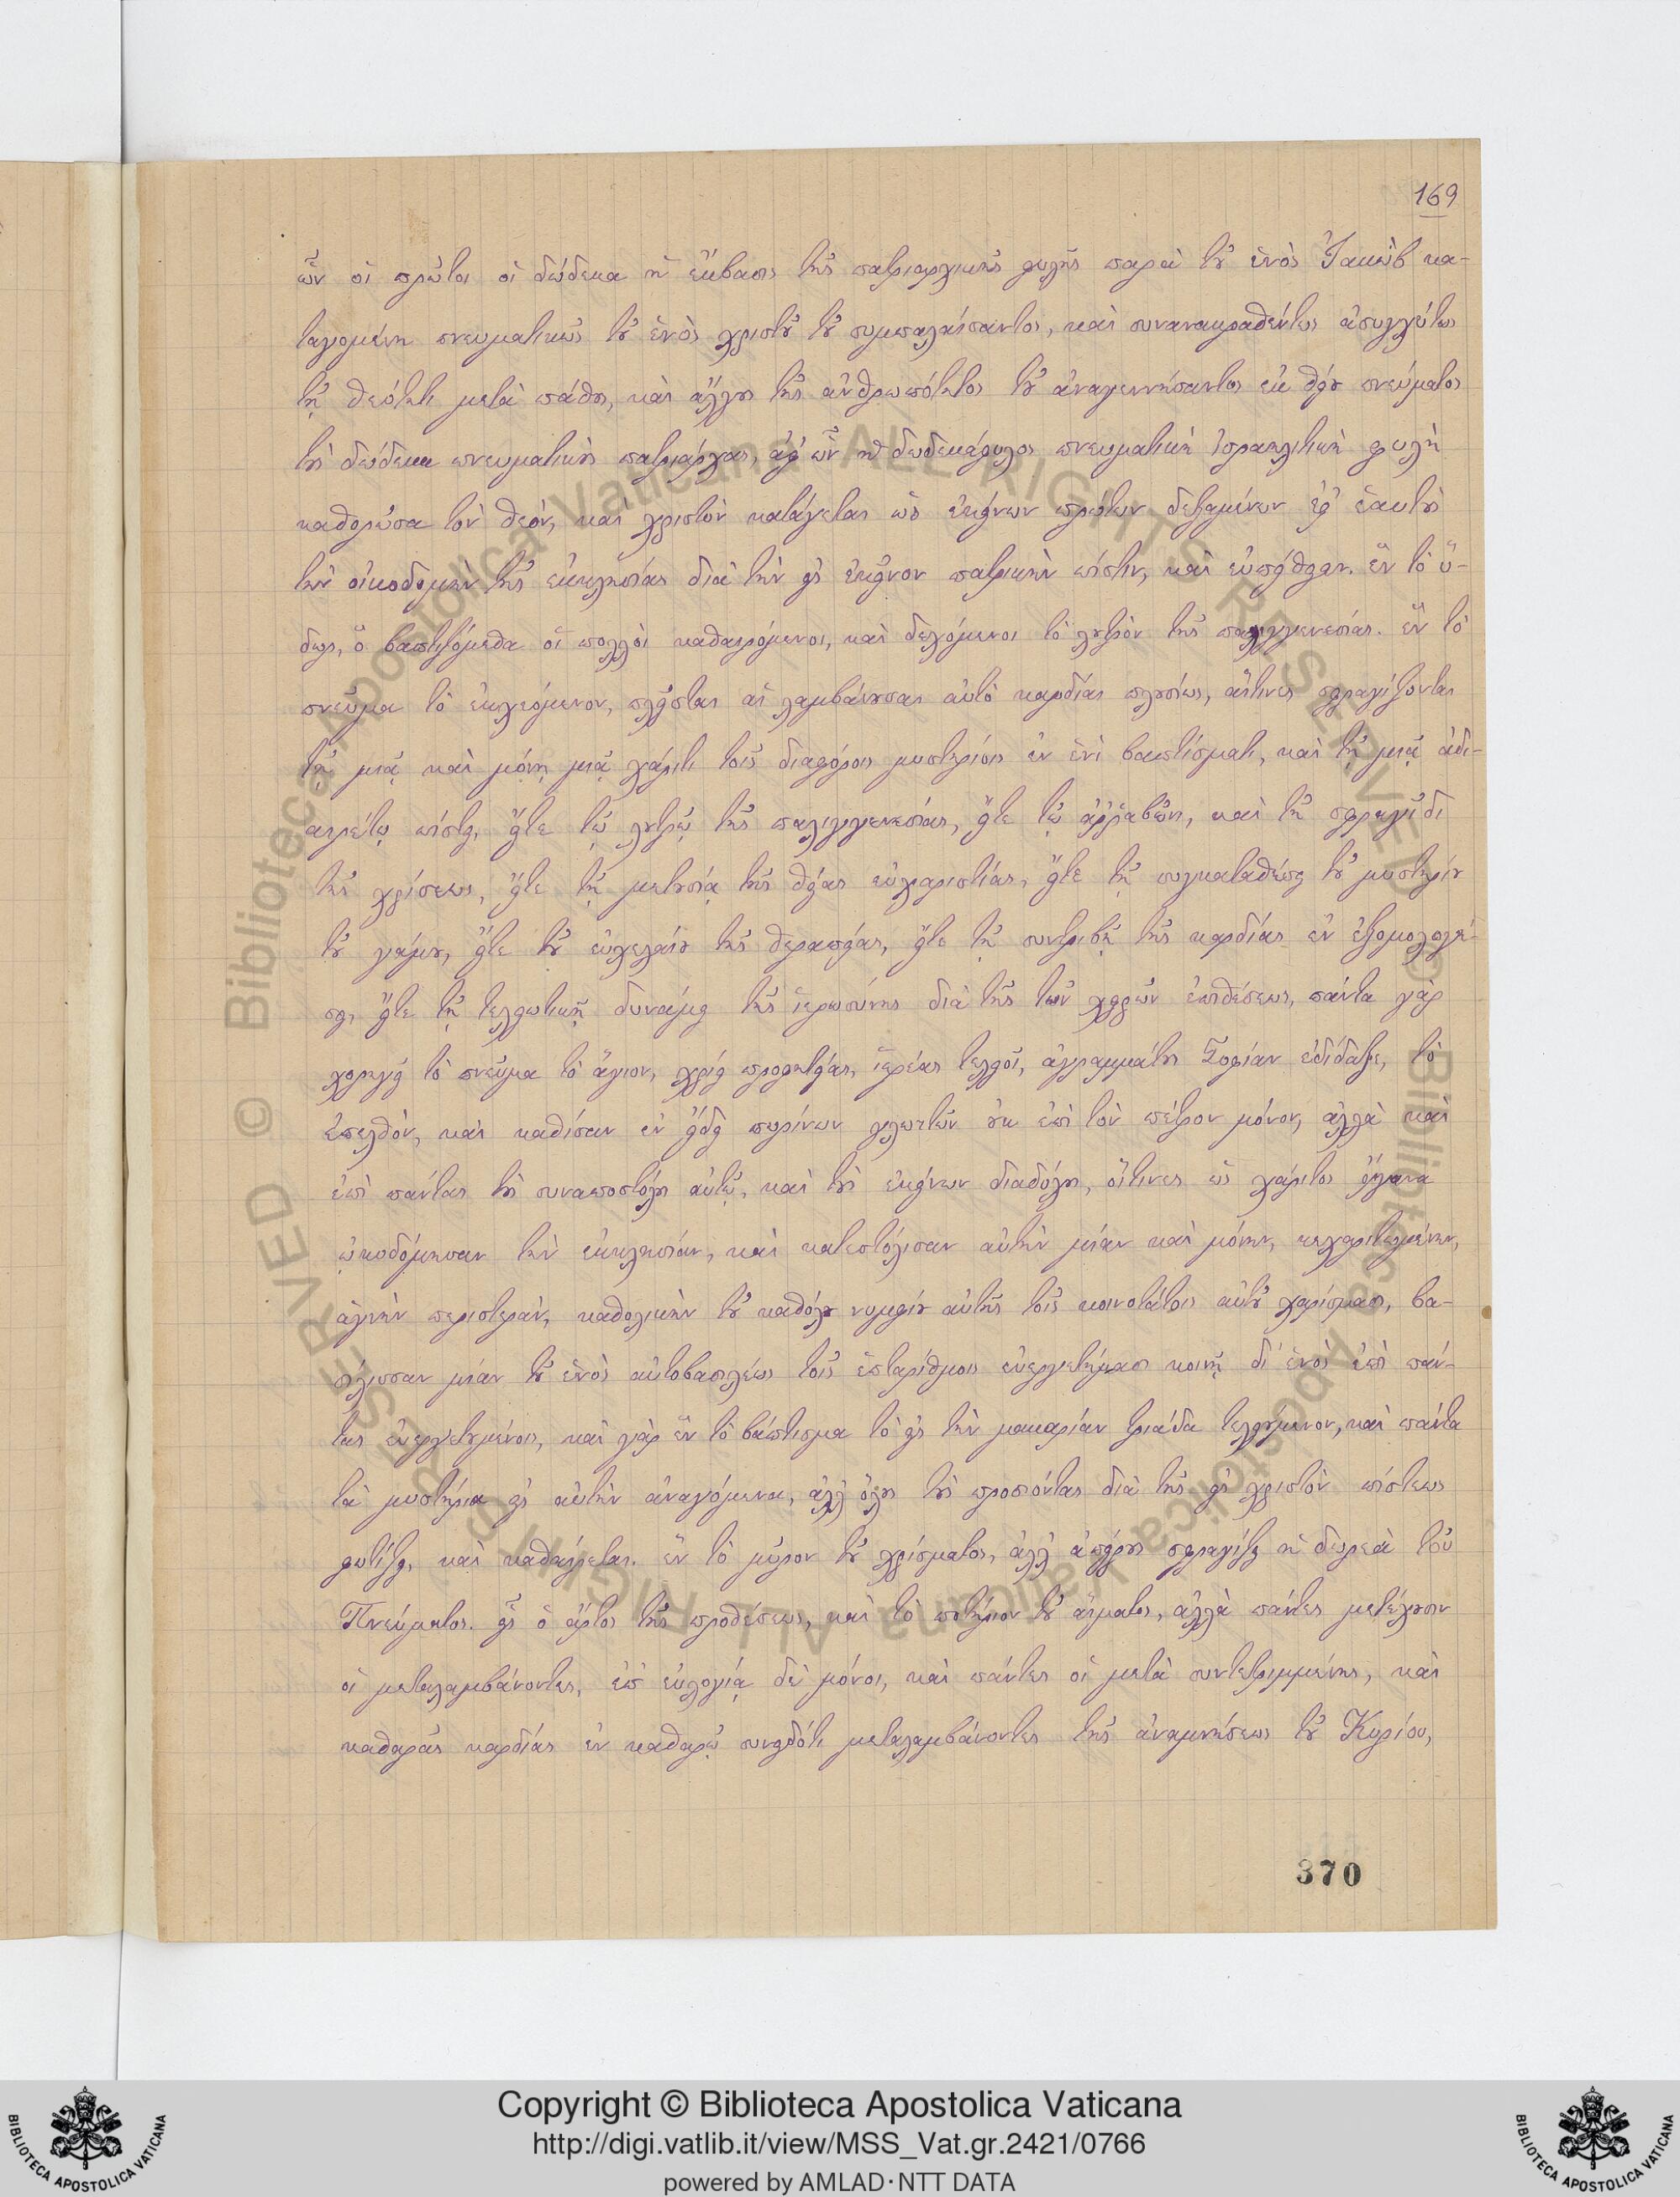 169
ὧν οἱ πρῶτοι οἱ δώδεκα ἡ ἔκβασις τῆς πατριαρχικῆς φυλῆς παρὰ τοῦ ἑνὸς Ἰακὼβ κα-
ταγομένη πνευματικῶς τοῦ ἑνὸς χριστοῦ τοῦ συμπαλαίσαντος, καὶ συνανακραθέντος ἀσυγχύτως
τῇ θεότητι μετὰ πάθους, καὶ ἄλγους τῆς ἀνθρωπότητος τοῦ ἀναγεννήσαντος ἐκ θείου πνεύματος
τοὺς δώδεκα πνευματικοὺς πατριάρχας, ἀφ' ὧν ἡ δωδεκάφυλος πνευματικὴ ἰσραηλιτικὴ φυλὴ
καθορῶσα τὸν θεὸν, καὶ χριστὸν κατάγεται ὡς ἐκείνων πρώτων δεξαμένων ἐφ' ἑαυτοὺς
τὴν οἰκοδομὴν τῆς ἐκκλησίας διὰ τὴν εἰς ἐκεῖνον πατρικὴν πίστιν, καὶ εὐπείθειαν. ἓν τὸ ὕ-
δωρ, ὃ βαπτιζόμεθα οἱ πολλοὶ καθαιρόμενοι, καὶ δεχόμενοι τὸ λουτρὸν τῆς παλιγγενεσίας. ἓν τὸ
πνεῦμα τὸ ἐκχεόμενον, πλεῖσται αἱ λαμβάνουσαι αὐτὸ καρδίαι πλουσίως, αἵτινες σφραγίζονται
τῇ μιᾷ καὶ μόνῃ μιᾷ χάριτι τοῖς διαφόροις μυστηρίοις ἐν ἑνὶ βαπτίσματι, καὶ τῇ μιᾷ ἀδι-
αιρέτῳ πίστει, εἴτε τῷ λουτρῷ τῆς παλιγγενεσίας, εἴτε τῷ ἀῤῥαβῶνι, καὶ τῇ σφραγῖδι
τῆς χρίσεως, εἴτε τῇ μετουσίᾳ τῆς θείας εὐχαριστίας, εἴτε τῇ συγκαταθέσει τοῦ μυστηρίου
τοῦ γάμου, εἴτε τοῦ εὐχελαίου τῆς θεραπείας, εἴτε τῇ συντριβῇ τῆς καρδίας ἐν ἐξομολογή-
σει, εἴτε τῇ τελειωτικῇ δυνάμει τῆς ἱερωσύνης διὰ τῆς τῶν χειρῶν ἐπιθέσεως, πάντα γὰρ
χορηγεῖ τὸ πνεῦμα τὸ ἅγιον, χρίει προφητείας, ἱερέας τελειοῖ, ἀγραμμάτους Σοφίαν ἐδίδαξε, τὸ
ἐπελθὸν, καὶ καθίσαν ἐν εἴδει πυρίνων γλωττῶν οὐκ ἐπὶ τὸν πέτρον μόνον, ἀλλὰ καὶ
ἐπὶ πάντας τοὺς συναποστόλους αὐτῷ, καὶ τοὺς ἐκείνων διαδόχους, οἵτινες ὡς χάριτος ὄργανα
ᾠκοδόμησαν τὴν ἐκκλησίαν, καὶ κατεστόλισαν αὐτὴν μίαν καὶ μόνην, κεχαριτωμένην,
ἁγνὴν περιστερὰν, καθολικὴν τοῦ καθόλου νυμφίου αὐτῆς τοῖς κοινοτάτοις αὐτοῦ χαρίσμασι, βα-
σίλισσαν μίαν τοῦ ἑνὸς αὐτοβασιλέως τοῖς ἑπταρίθμοις εὐεργετήμασι κοινῇ δι' ἑνὸς ἐπὶ πάν-
τας εὐεργετουμένοις, καὶ γὰρ ἓν τὸ βάπτισμα τὸ εἰς τὴν μακαρίαν τριάδα τελούμενον, καὶ πάντα
τὰ μυστήρια εἰς αὐτὴν ἀναγόμενα, ἀλλ' ὅλους τοὺς προσιόντας διὰ τῆς εἰς χριστὸν πίστεως
φωτίζει, καὶ καθαίρεται. ἓν τὸ μύρον τοῦ χρίσματος, ἀλλ' ἀπείρους σφραγίζει ἡ δωρεὰ τοῦ
Πνεύματος. εἷς ὁ ἄρτος τῆς προθέσεως, καὶ τὸ ποτήριον τοῦ αἵματος, ἀλλὰ πάντες μετέχουσιν
οἱ μεταλαμβάνοντες, ἐπ' εὐλογίᾳ δὲ μόνοι, καὶ πάντες οἱ μετὰ συντετριμμένης, καὶ
καθαρᾶς καρδίας ἐν καθαρῷ συνειδότι μεταλαμβάνοντες τῆς ἀναμνήσεως τοῦ Κυρίου,
370
Copyright © Biblioteca Apostolica Vaticana
http://digi.vatlib.it/view/MSS_Vat.gr.2421/0766
powered by AMLAD·NTT DATA